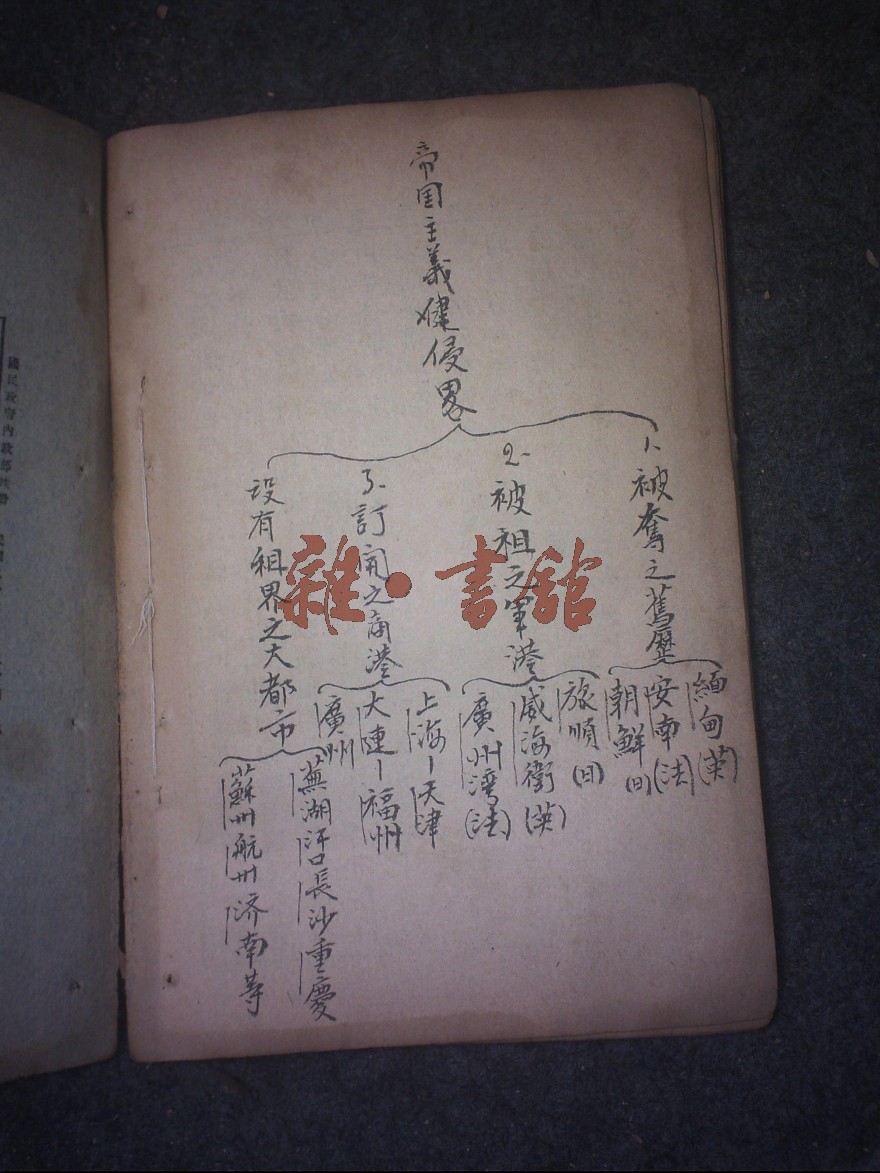 帝国主義侵畧
1. 被奪之舊歷
緬甸(英)
安南(法)
朝鮮(日)
2. 被租之軍港
旅順(日)
威海衛(英)
廣州湾(法)
3. 訂開之商港
上海－天津
大連－福州
廣州
設有租界之大都市
蕪湖 汗口 長沙 重慶
蘇州 航州 济南等
雜·書舘
國民政府內政部